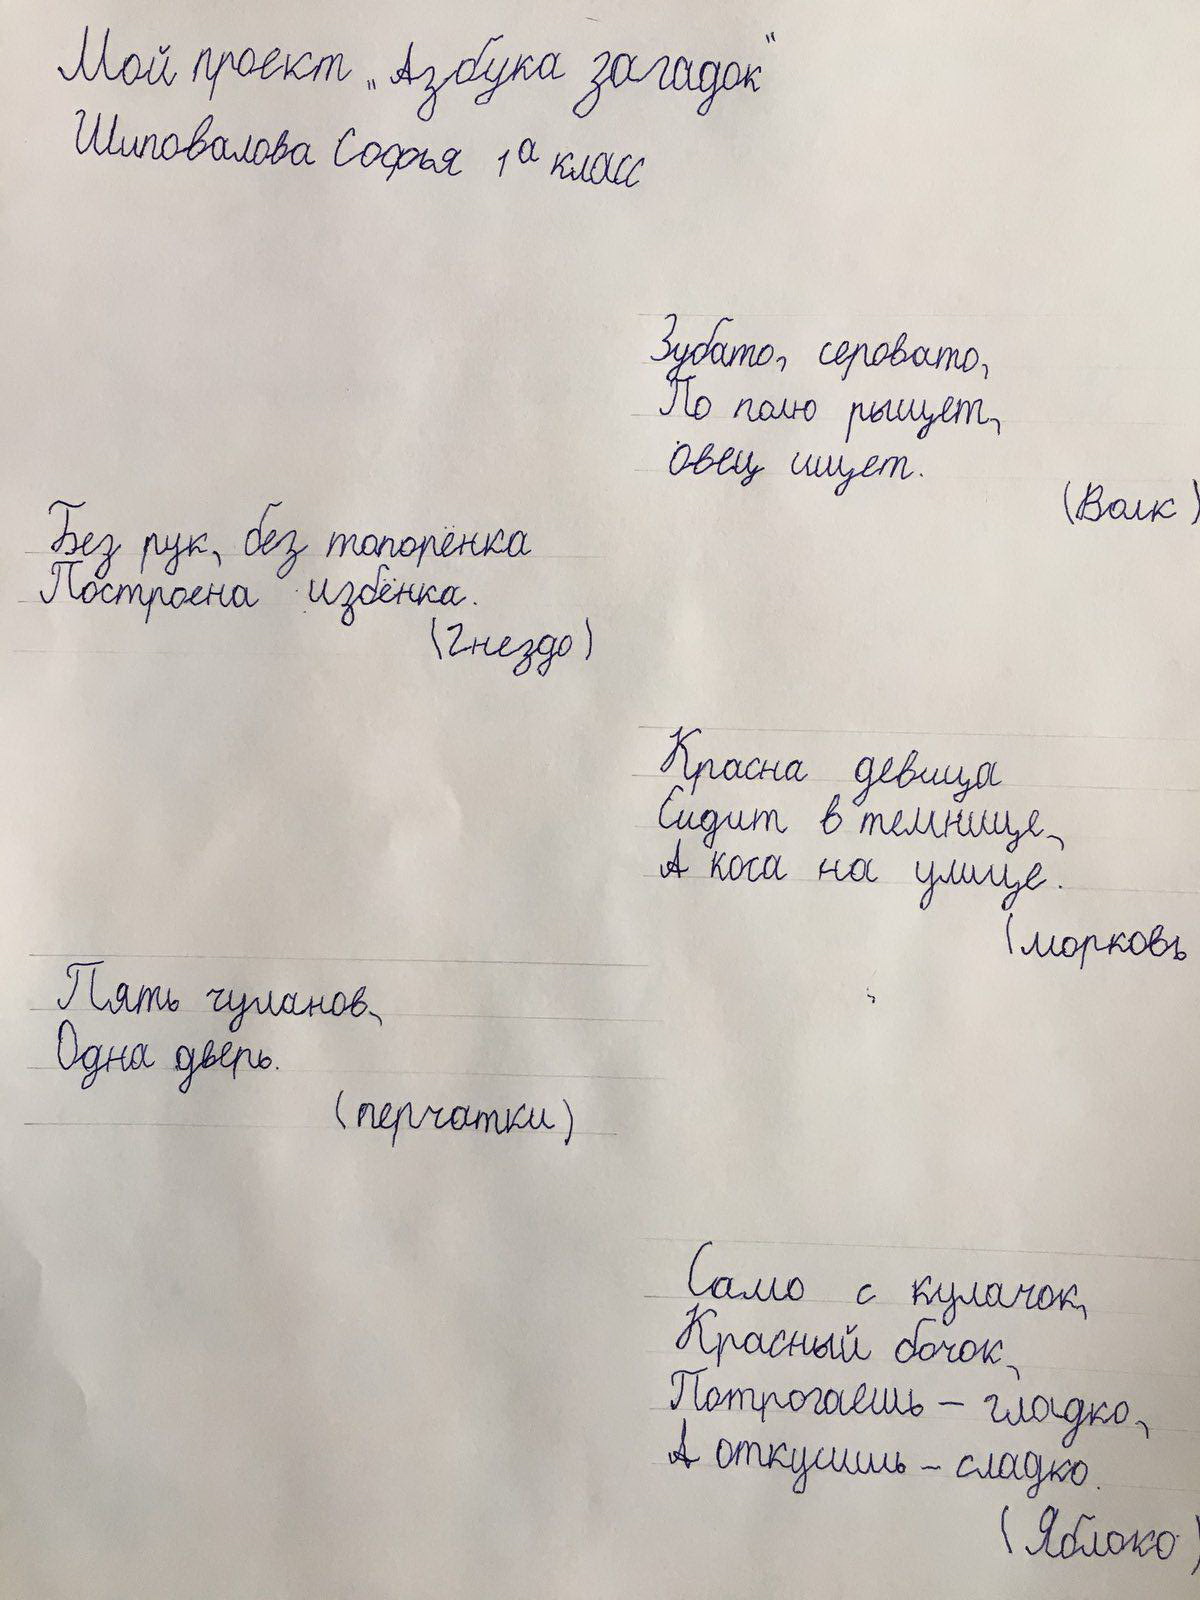 Мой проект „Азбука загадок“
Шиповалова Софья 1а класс
Зубато, серовато,
По полю рыщет,
овец ищет.
(Волк)
Без рук, без топорёнка
Построена избёнка.
(Гнездо)
Красна девица
Сидит в темнице,
А коса на улице.
(морковь
Пять чуланов,
Одна дверь.
(перчатки)
Само с кулачок,
Красный бочок,
Потрогаешь – гладко,
А откусишь – сладко.
(Яблоко)